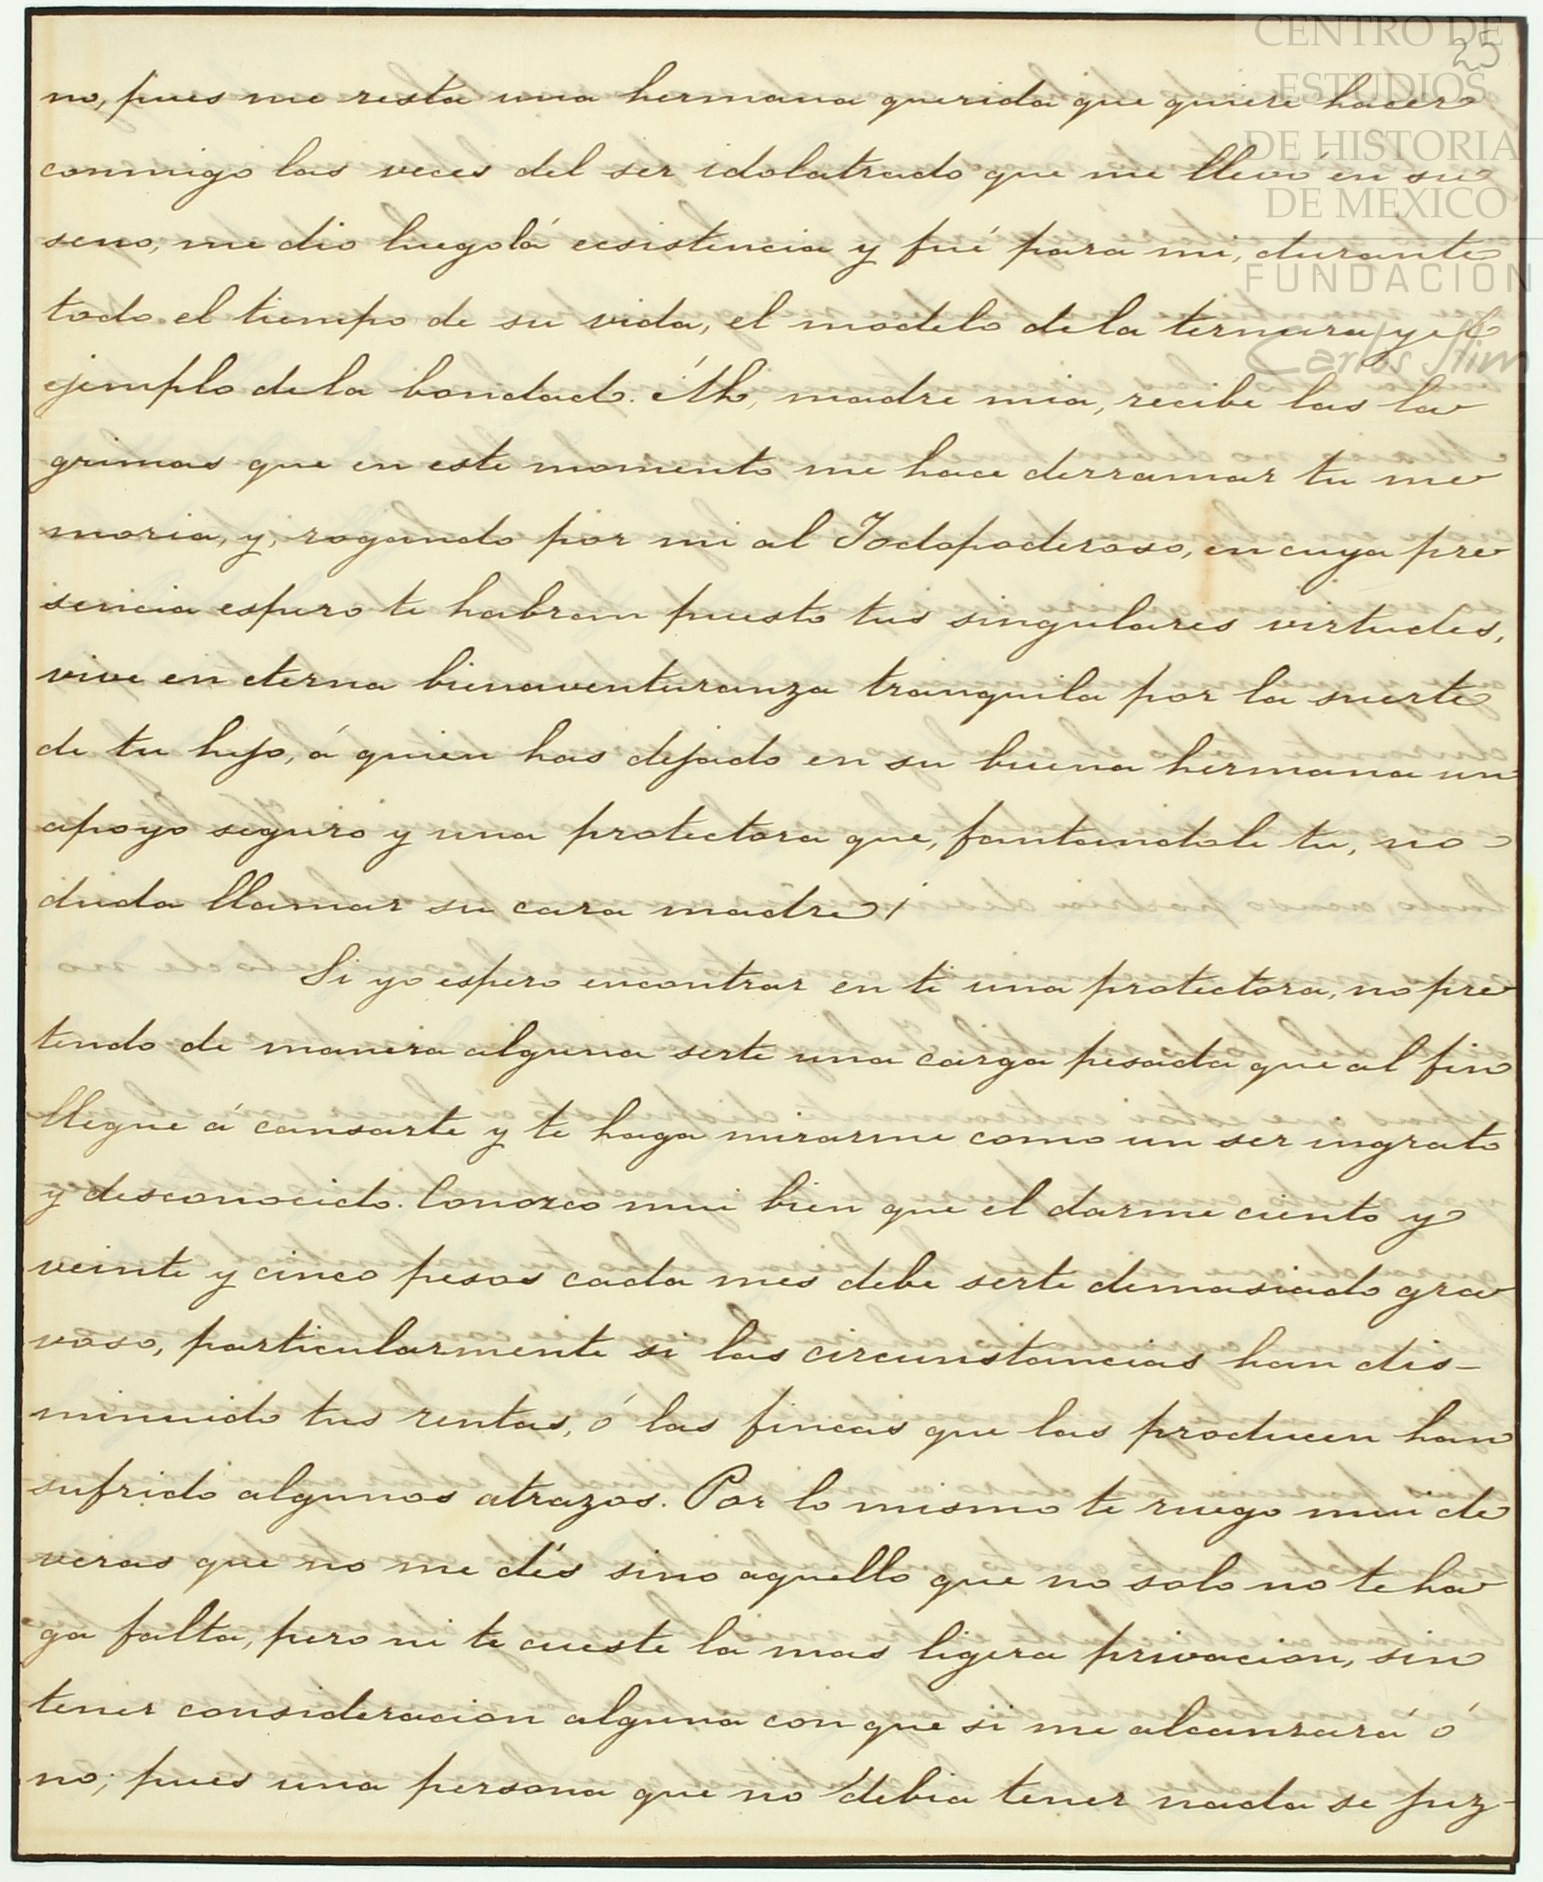 25
CENTRO DE
ESTUDIOS
DE HISTORIA
DE MEXICO
FUNDACION
Carlos Slim
no, pues me resta una hermana querida que quiere hacer
conmigo las veces del ser idolatrado que me llevó en su
seno, me dio luego lá ecsistencia y fué para mi, durante
todo el tiempo de su vida, el modelo de la ternura y el
ejemplo de la bondad. Ah, madre mia, recibe las la-
grimas que en este momento me hace derramar tu me-
moria, y, rogando por mi al Todopoderoso, en cuya pre-
sencia espero te habran puesto tus singulares virtudes,
vive en eterna bienaventuranza tranquila por la suerte
de tu hijo, á quien has dejado en su buena hermana un
apoyo seguro y una protectora que, fantandole tu, no
duda llamar su cara madre!
Si yo espero encontrar en ti una protectora, no pre-
tendo de manera alguna serte una carga pesada que al fin
llegue á cansarte y te haga mirarme como un ser ingrato
y desconocido. Conozco mui bien que el darme ciento y
veinte y cinco pesos cada mes debe serte demasiado gra-
voso, particularmente si las circunstancias han dis-
minuido tus rentas, ó las fincas que las producen han
sufrido algunos atrazos. Por lo mismo te ruego mui de
veras que no me dés sino aquello que no solo no te ha-
ga falta, pero ni te cueste la mas ligera privacion, sin
tener consideracion alguna con que si me alcanzará ó
no; pues una persona que no debia tener nada se juz-